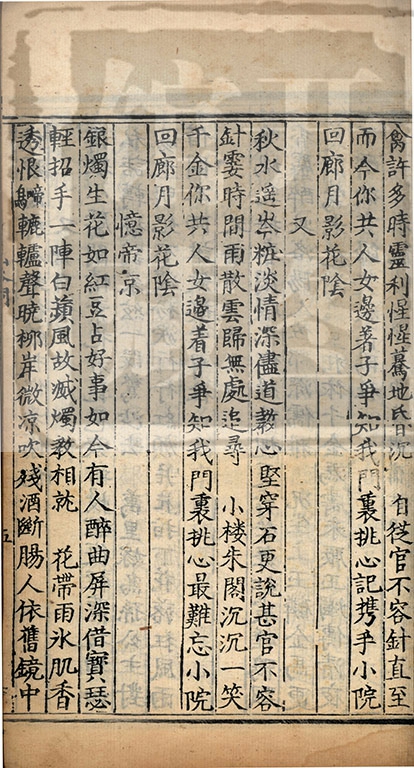 禽許多時靈利惺惺驀地昏沉 自從官不容針直至
而今你共人女邊著子爭知我門裏挑心記携手小院
回廊月影花陰
又
秋水遥岑粧淡情深儘道教心堅穿石更說甚官不容
針霎時間雨散雲歸無處追尋 小楼朱閣沉沉一笑
千金你共人女邊着子爭知我門裏挑心最難忘小院
回廊月影花陰
憶帝京
銀燭生花如紅豆占好事如今有人醉曲屏深借寶瑟
輕招手一陣白蘋風故滅燭教相就 花帶雨氷肌香
透恨啼鳥轆轤聲曉柳岸微凉吹殘酒斷腸人依舊鏡中
五